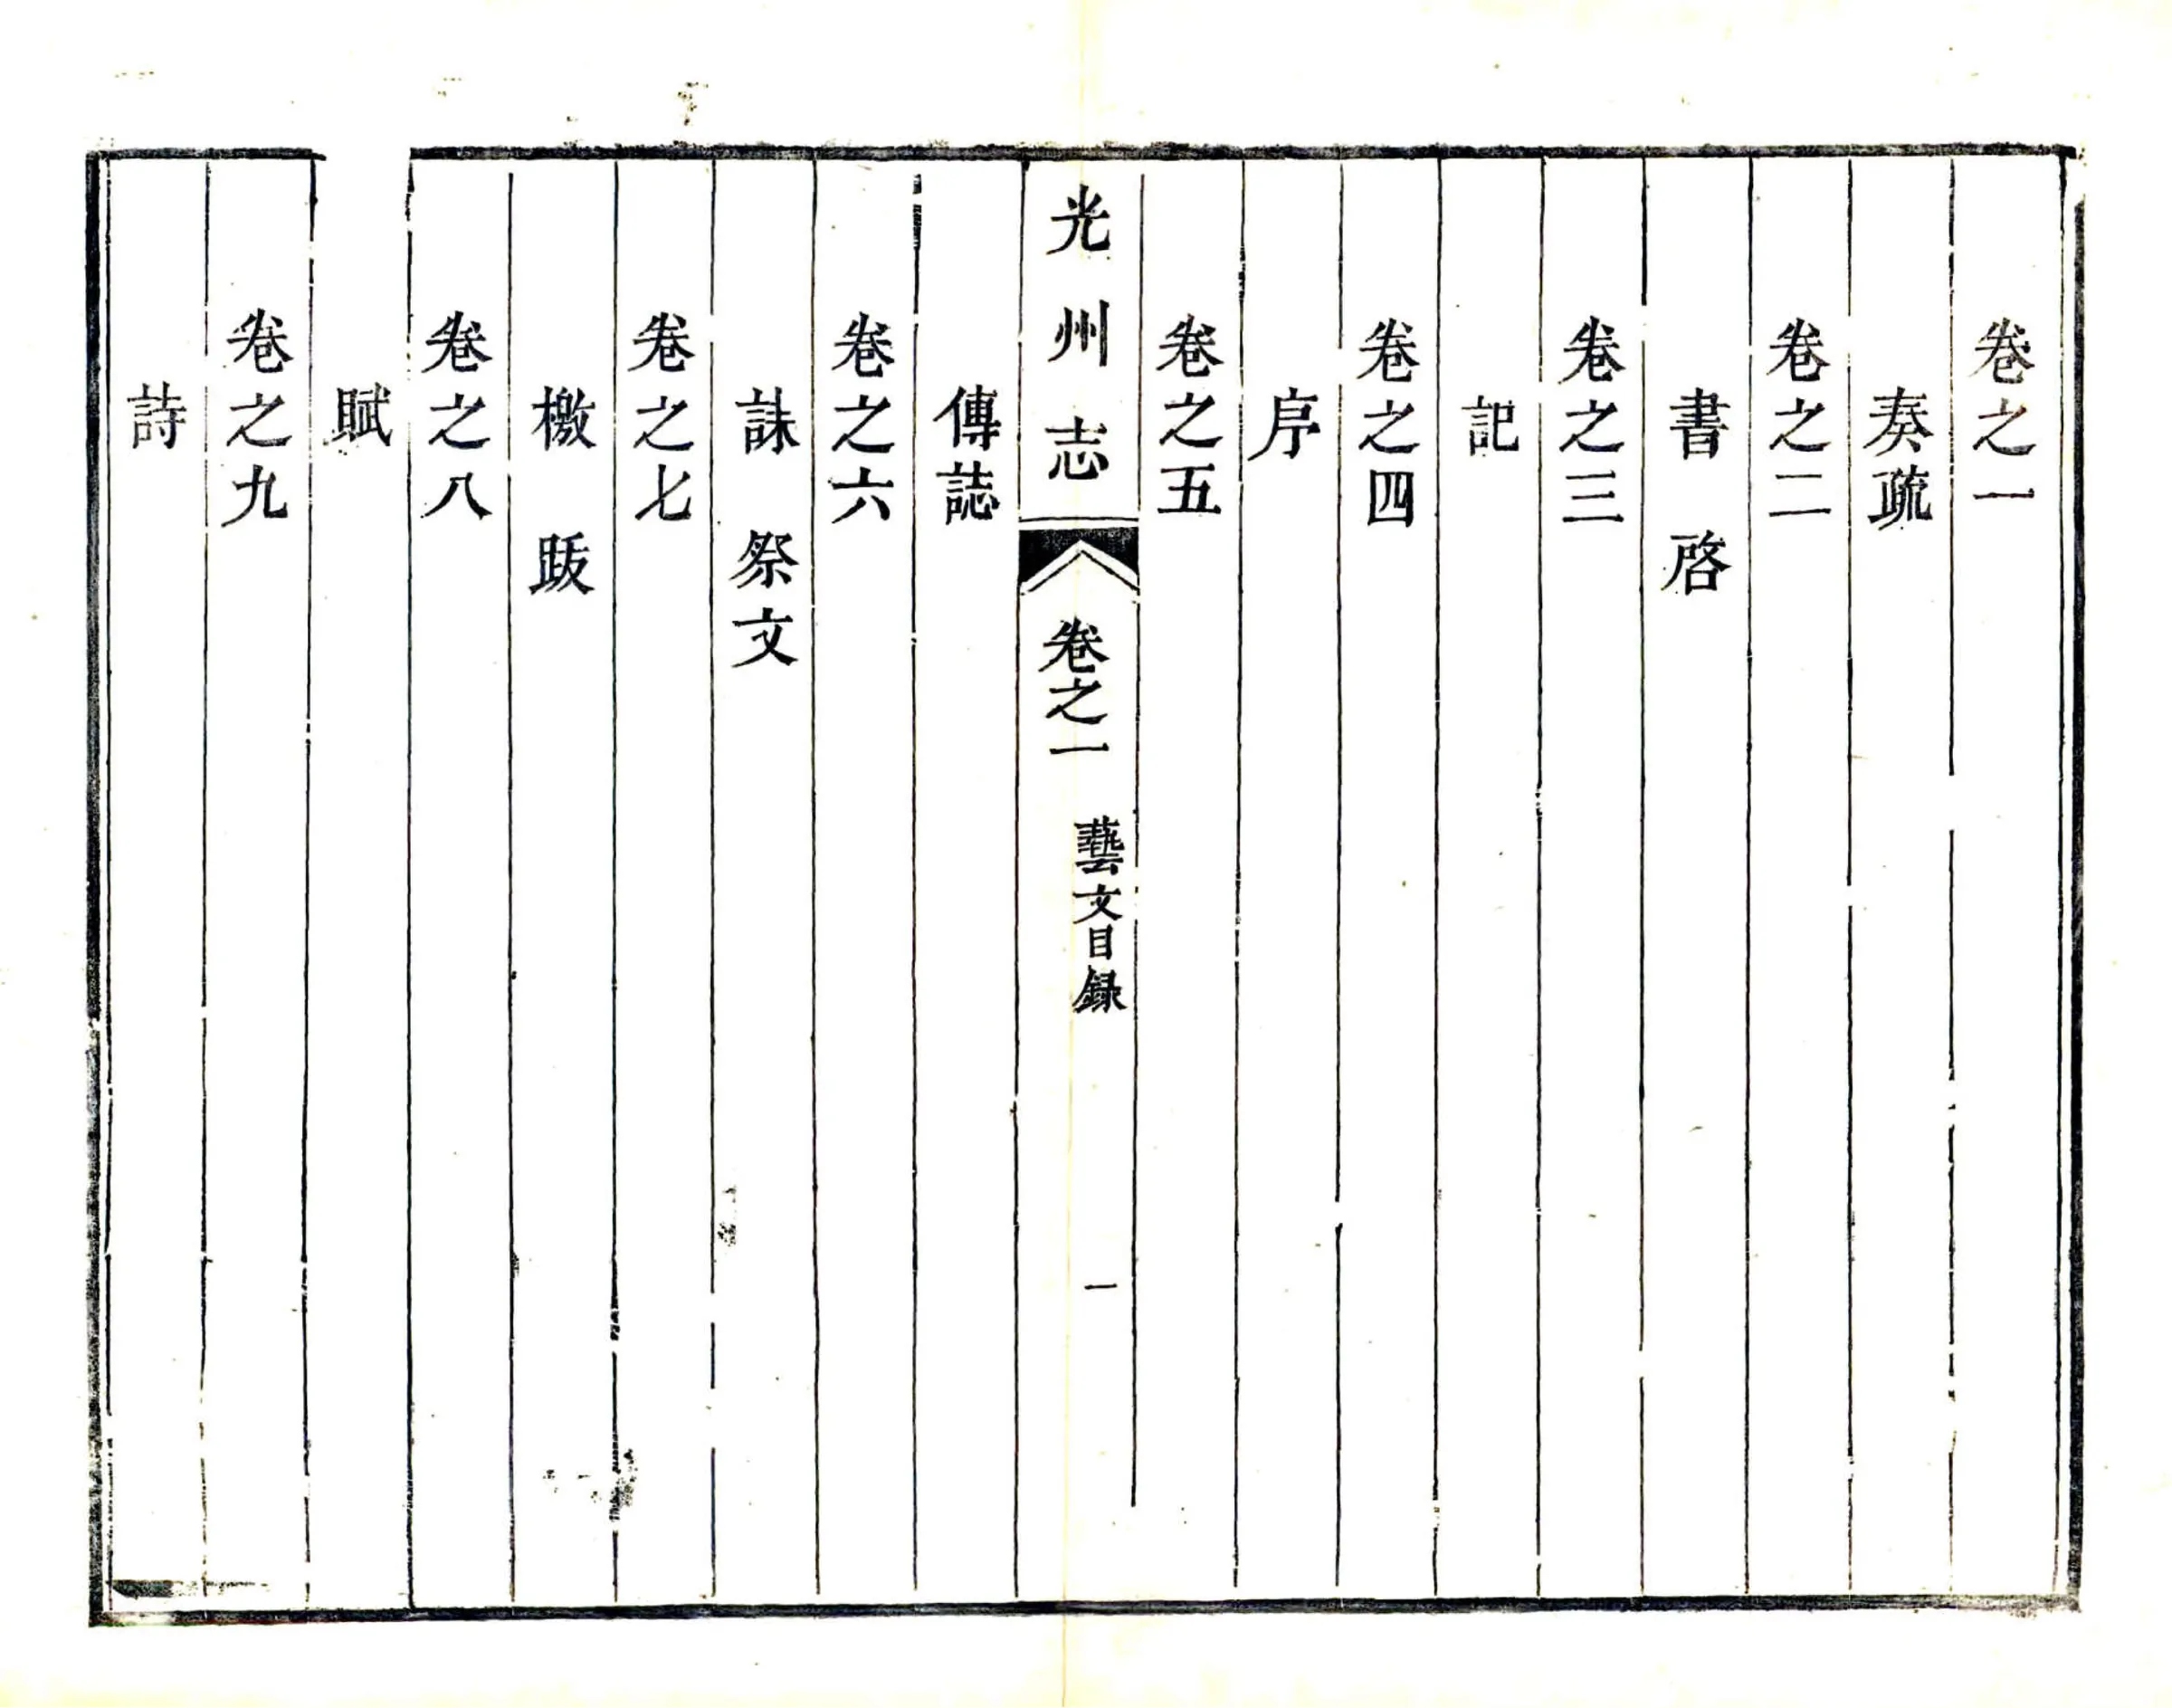 卷之一
奏疏
卷之二
書 啓
卷之三
記
卷之四
序
卷之五
光州志 卷之一 藝文目録 一
傳誌
卷之六
誄 祭文
卷之七
檄 跋
卷之八
賦
卷之九
詩